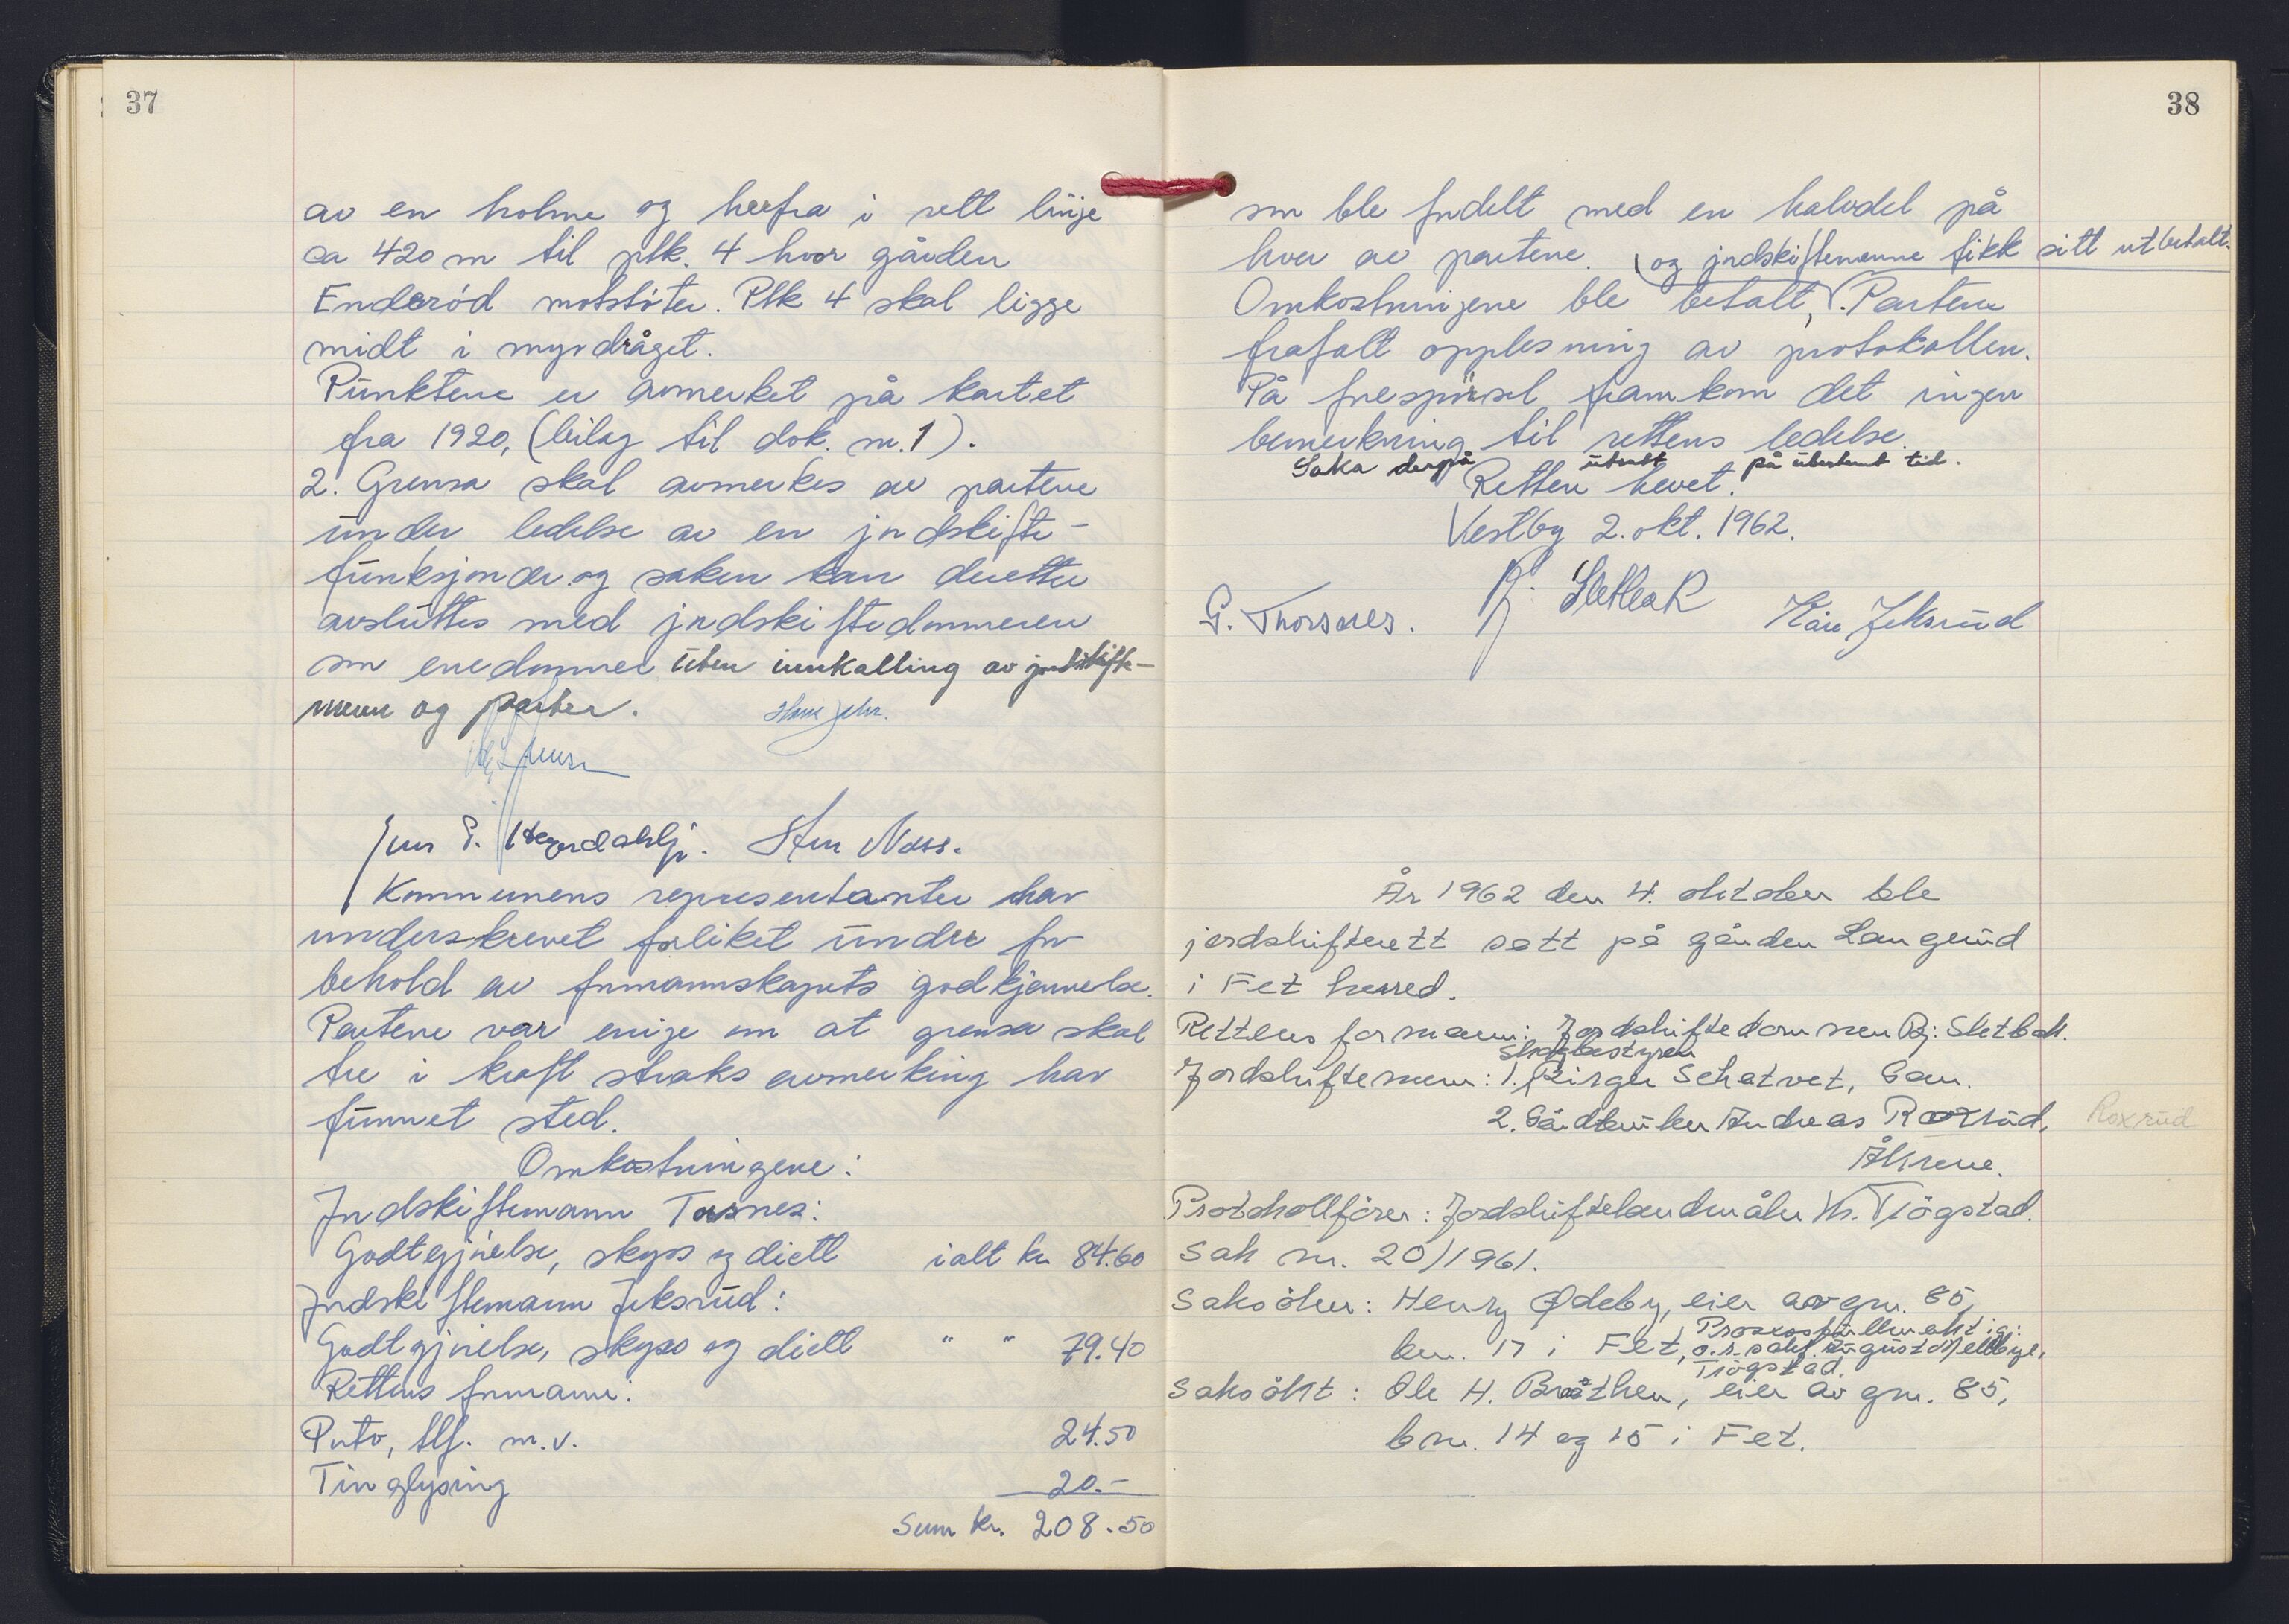 37
av en holme og herfra i rett linje
ca 420 m til plk. 4 hvor gården
Enderöd motstöter. Plk 4 skal ligge
midt i myrdråget.
Punktene er avmerket på kartet
fra 1920, (bilag til dok. nr. 1).
2. Grensa skal avmerkes av partene
under ledelse av en jordskifte-
funksjonær og saken kan deretter
avsluttes med jordskiftedommeren
som enedommer uten innkalling av jordskifte-
menn og parter.
Sten Noss.
Kommunens representanter har
underskrevet forliket under for-
behold av formannskapets godkjennelse.
Partene var enige om at grensa skal
tre i kraft straks avmerking har
funnet sted.
Omkostningene:
Jordskiftemann Torsnes:
Godtgjörelse, skyss og diett ialt kr 84.60
Jordskiftemann Jeksrud:
Godtgjörelse, skyss og diett " " 79.40
Rettens formann:
Porto, tlf. m.v. 24.50
Tinglysing 20.-
Sum kr. 208.50
38
som ble fordelt med en halvdel på
hver av partene.
og jordskiftemennene fikk sitt utbetalt.
Omkostningene ble betalt, . Partene
frafalt opplesning av protokollen.
På forespörsel framkom det ingen
bemerkning til rettens ledelse.
Saka derpå utsatt på ubestemt tid.
Retten hevet.
Vestby 2. okt. 1962.
G. Thorsnes. Bj. Sletbak Kåre Jeksrud
År 1962 den 4. oktober ble
jordskifterett satt på gården Langerud
i Fet herred.
Rettens formann: Jordskiftedommer Bj: Sletbak.
Skogbestyrer
Jordskiftemenn: 1. Birger Schatvet, Gan.
2. Gårdbruker Andreas Roxrud, Roxrud
Åkrene.
Protokollförer: Jordskiftelandmåler Kr. Tjögstad.
Sak nr. 20/1961.
Saksöker: Henry Ødeby, eier av gnr. 85,
Prosessfullmektig:
bnr. 17 i Fet, o.r.sakf. August Mellbye,
Tjögstad.
Saksökt: Ole H. Bråthen, eier av gnr. 85,
bnr. 14 og 15 i Fet.